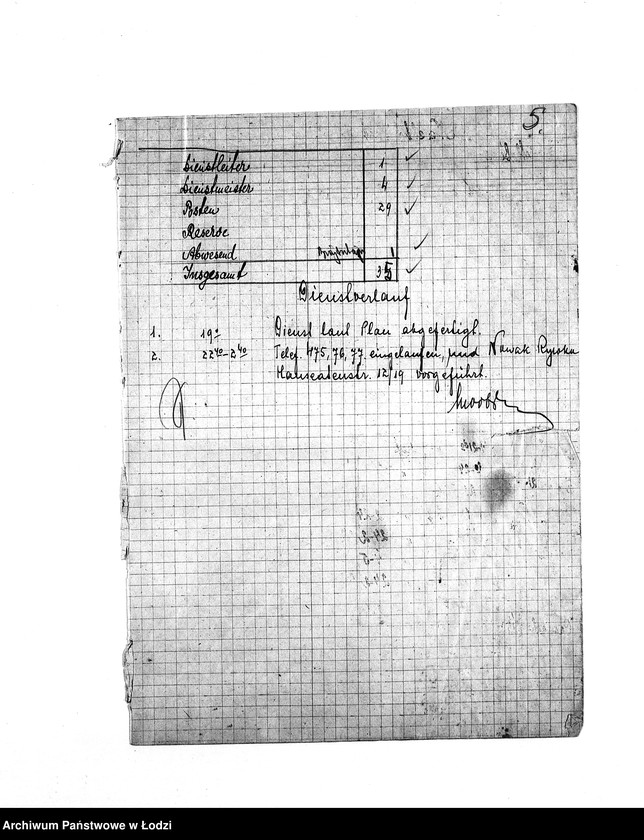 5.
Dienstleiter 1
Dienstmeister 4
Posten 29
Reserve
Abwesend 1
Insgesamt 35
Dienstverlauf
1. 19º Dienst laut Plan abgefertigt.
2. 22⁴⁰-2⁴⁰ Telef. 475, 76, 77 eingelaufen, und Nowak Ryska
Hanseatenstr. 12/19 vorgeführt.
Archiwum Państwowe w Łodzi